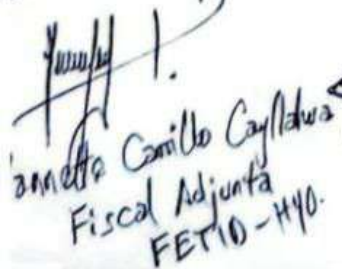 annette Carrillo Cayllahua
Fiscal Adjunta
FETID-HYO.